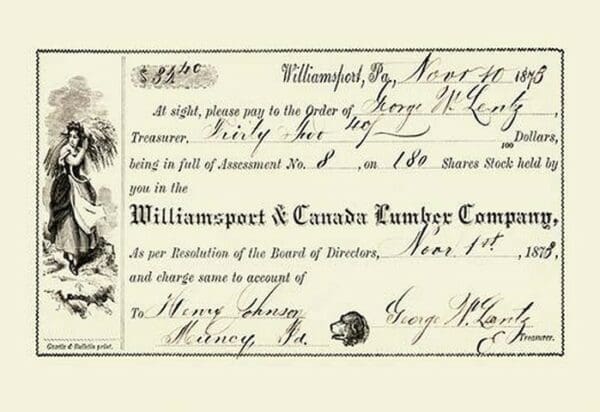 $32 40 Williamsport, Pa., Novr 10 1873
At sight, please pay to the Order of George W. Lentz,
Treasurer, Thirty Two 40/100 Dollars,
being in full of Assessment No. 8, on 180 Shares Stock held by
you in the
Williamsport & Canada Lumber Company,
As per Resolution of the Board of Directors, Novr 1st, 1873,
and charge same to account of
To Henry Johnson George W. Lentz
Muncy, Pa. Treasurer.
Gazette & Bulletin print.